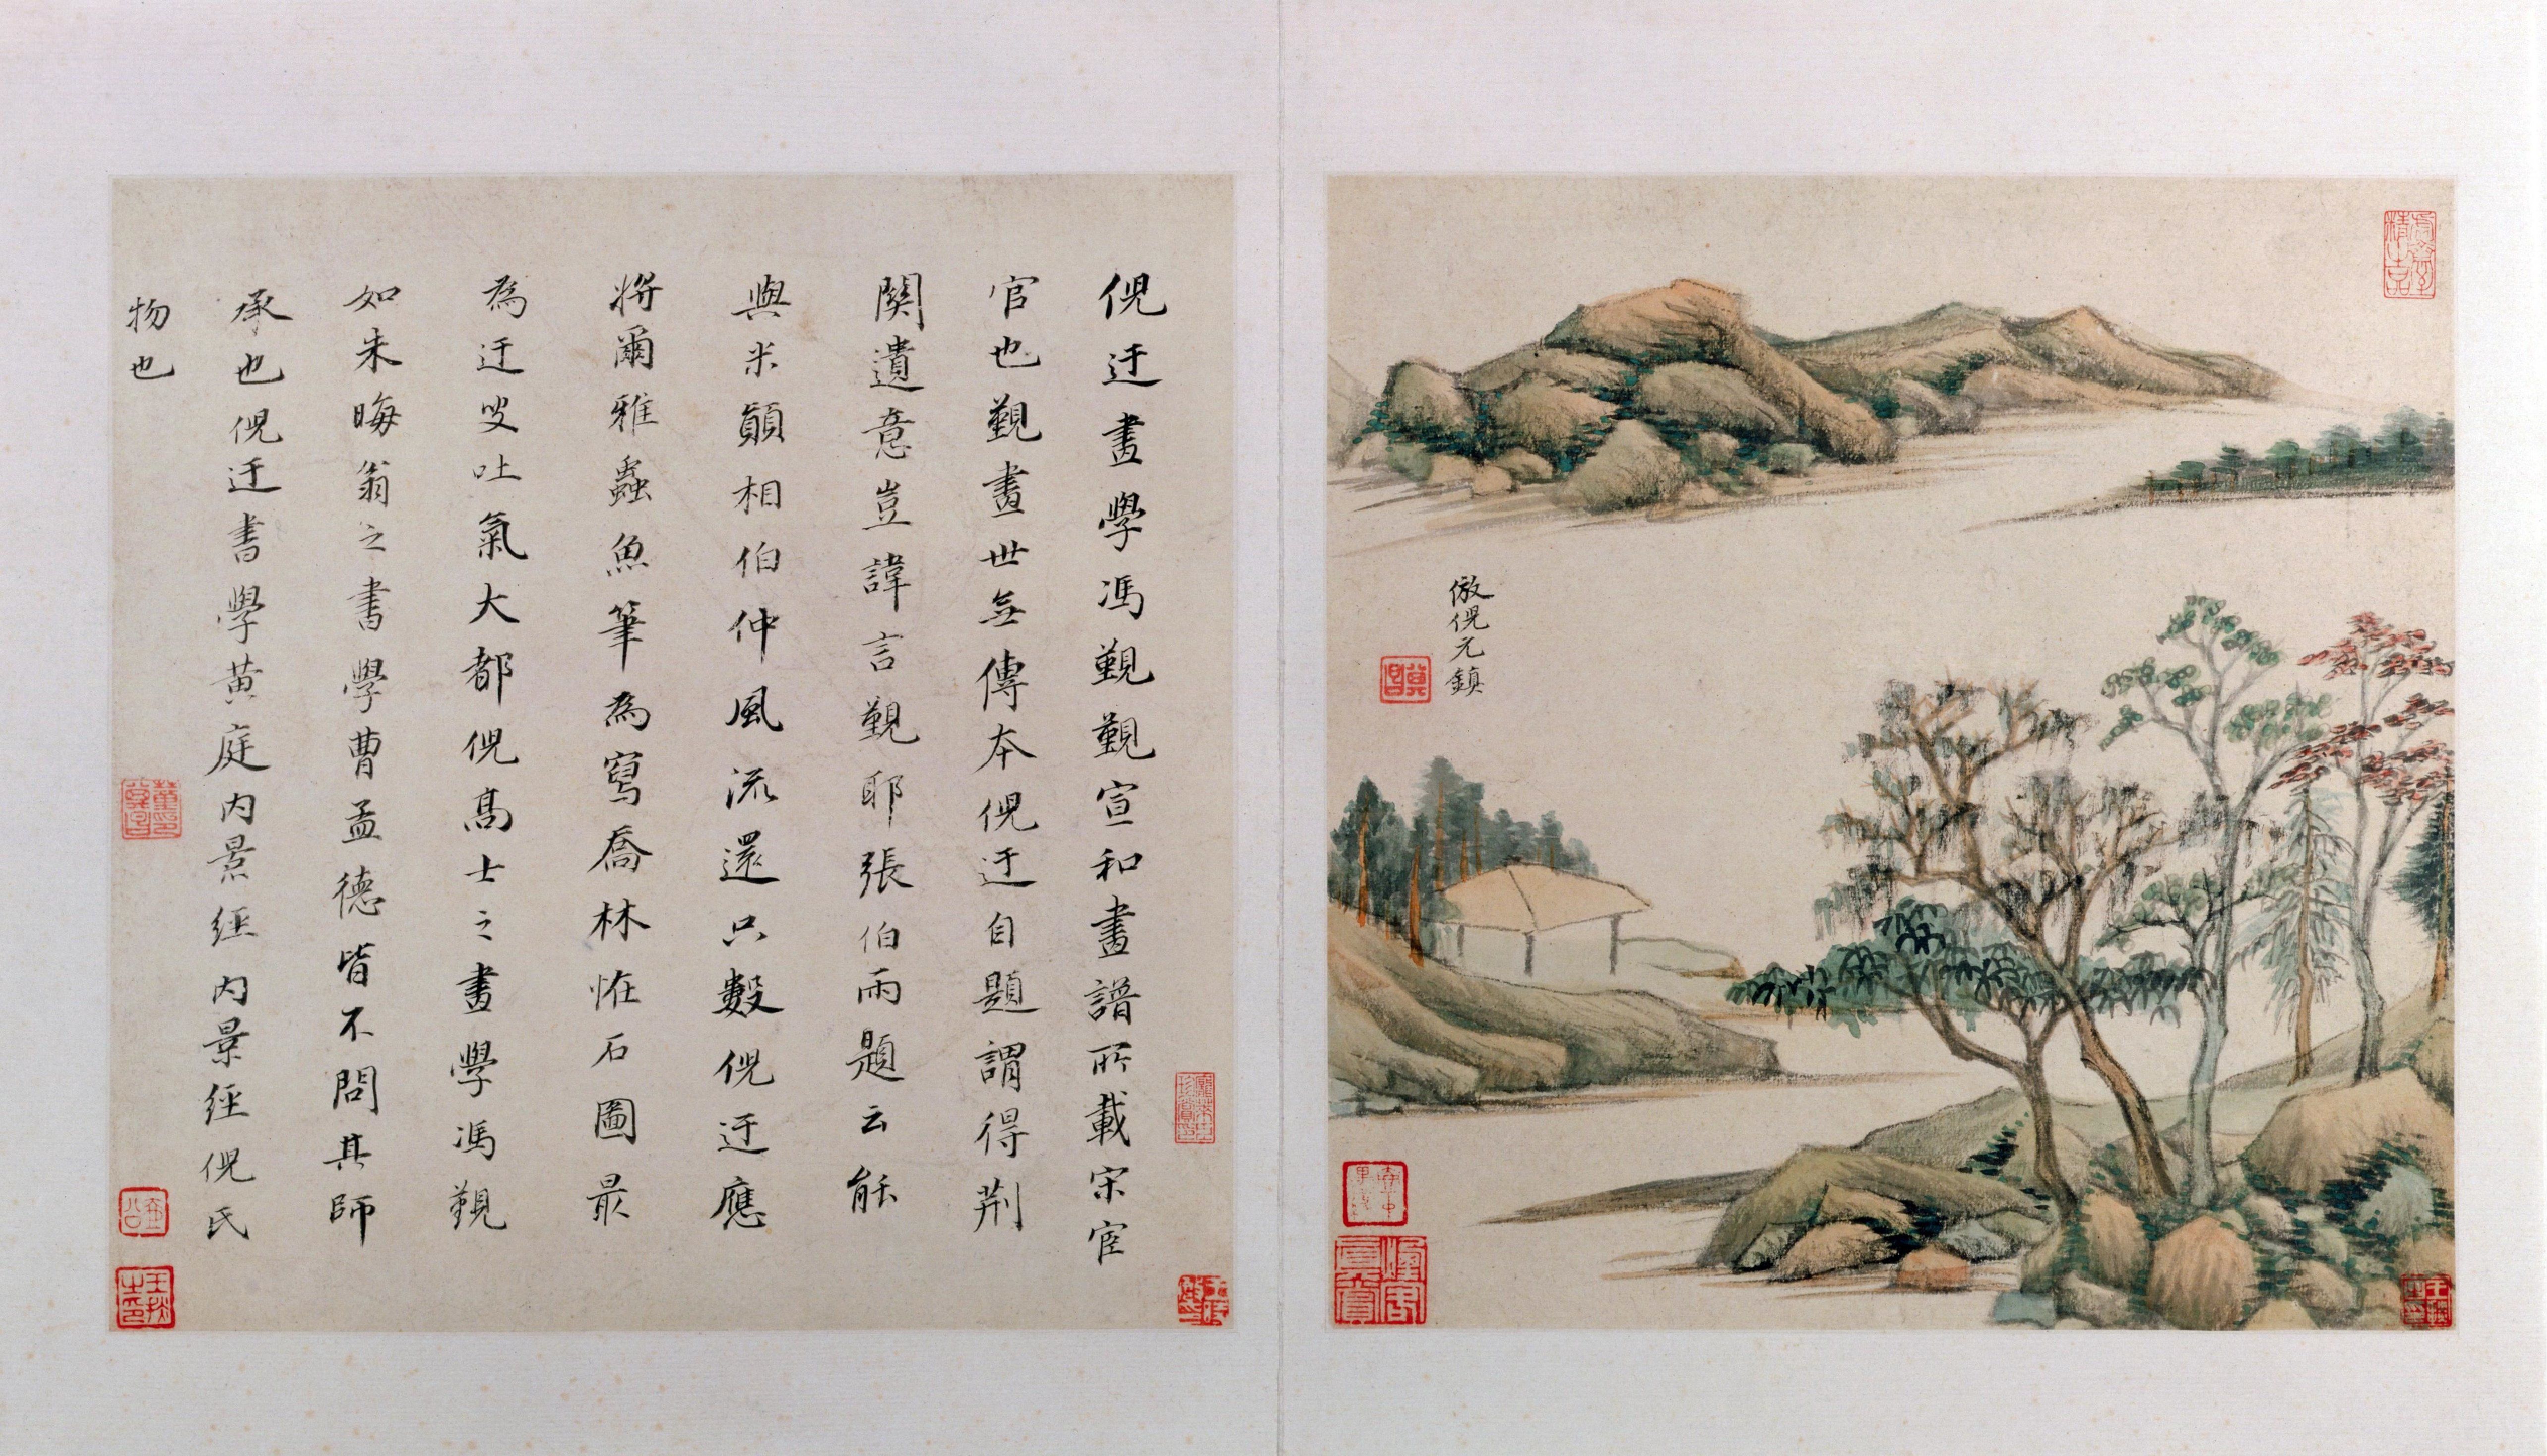 虛齋精品
倣倪元鎮
其昌
煙客真賞
倪迂畫學馮覲覲宣和畫譜所載宋宦
官也覲畫世無傳本倪迂自題謂得荆
關遺意豈諱言覲耶張伯雨題云能
與米顛相伯仲風流還只數倪迂應
將爾雅蟲魚筆為寫喬林恠石圖最
為迂叟吐氣大都倪高士之畫學馮覲
如朱晦翁之書學曹孟德皆不問其師
承也倪迂書學黄庭内景經内景經倪氏
物也
董其昌印
王掞之印